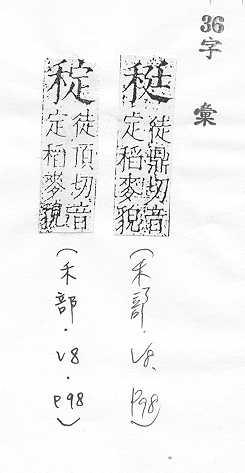 36字彙
徒鼎切音
定稻麥貌
(禾部.V8.P98)
徒頂切音
定稻麥貌
(禾部.V8.P98)